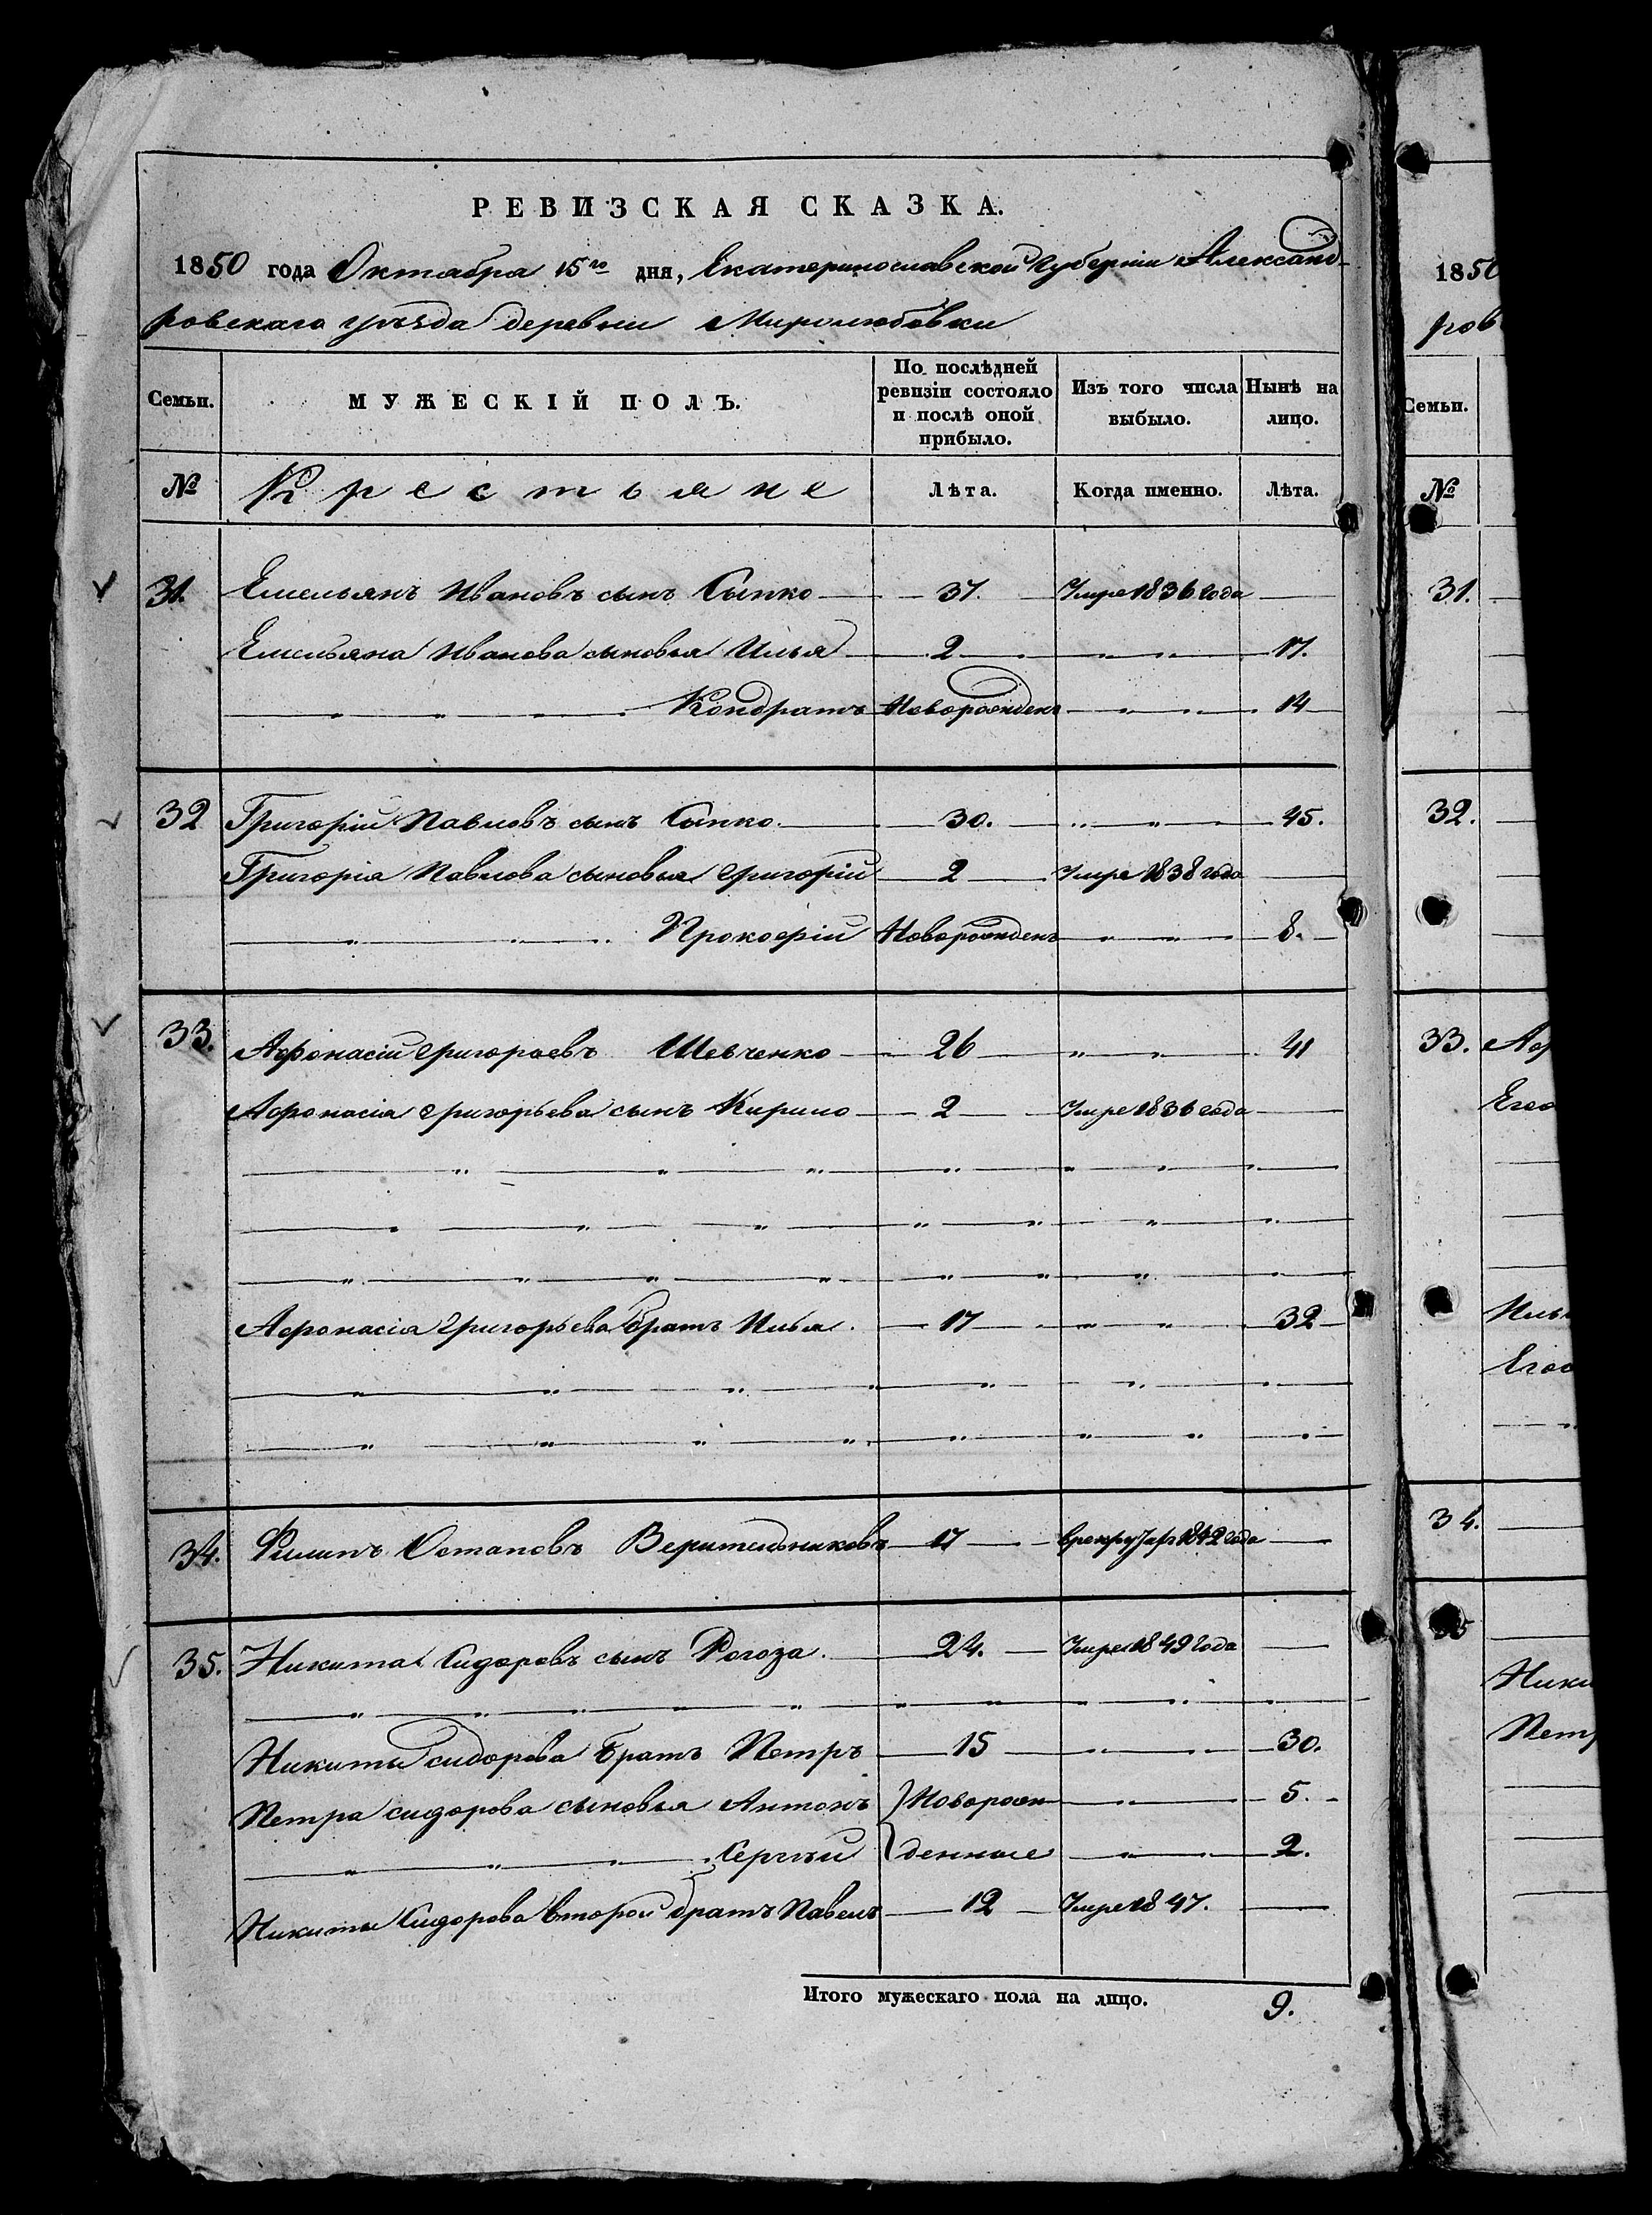 РЕВИЗСКАЯ СКАЗКА.
1850 года Октября 15го дня, Екатеринославской Губерніи Александ-
ровскаго уѣзда деревни Миролюбовки
Семьи. МУЖЕСКІЙ ПОЛЪ. По послѣдней ревизіи состояло и послѣ оной прибыло. Изъ того числа выбыло. Нынѣ на лицо.
№ Крестьяне Лѣта. Когда именно. Лѣта.
31. Емельянъ Ивановъ сынъ Сыпко 37. Умре 1836 года
Емельяна Иванова сыновья Илья 2 17.
Кондратъ Новорожденъ 14
32 Григорій Павловъ сынъ Сыпко. 30. 45.
Григорія Павлова сыновья Григорій 2 Умре 1838 года
Прокофій Новорожденъ 8.
33. Афонасій Григорьевъ Шевченко 26 41
Афонасія Григорьева сынъ Кирило 2 Умре 1836 года
Афонасія Григорьева братъ Илья. 17 32
34. Филипъ Остаповъ Верительниковъ 17 в рекрутахъ 1842 года
35. Никита Сидоровъ сынъ Рогоза. 24. Умре 1849 года
Никиты Сидорова братъ Петръ 15 30.
Петра Сидорова сыновья Антонъ } Поворож 5.
Сергѣй денные 2.
Никиты Сидорова второй братъ Павелъ 12 Умре 1847.
Итого мужескаго пола на лицо. 9.
1850
ров
Семьи.
№
31.
32.
33. Аф
Его
Иль
Его
34.
35
Ники
Петр